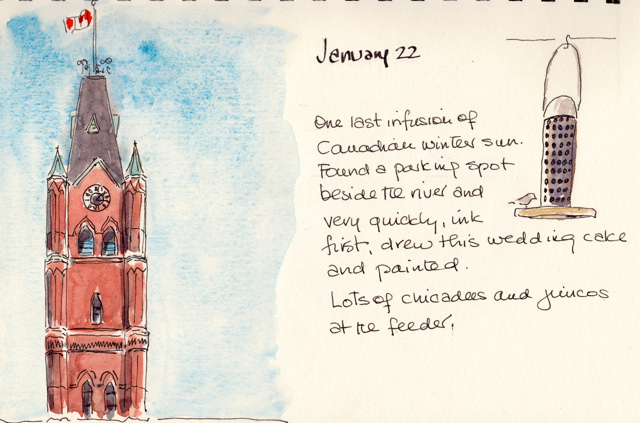 January 22
One last infusion of
Canadian winter sun.
Found a parking spot
beside the river and
very quickly, ink
first, drew this wedding cake
and painted.
Lots of chicadees and juncos
at the feeder.